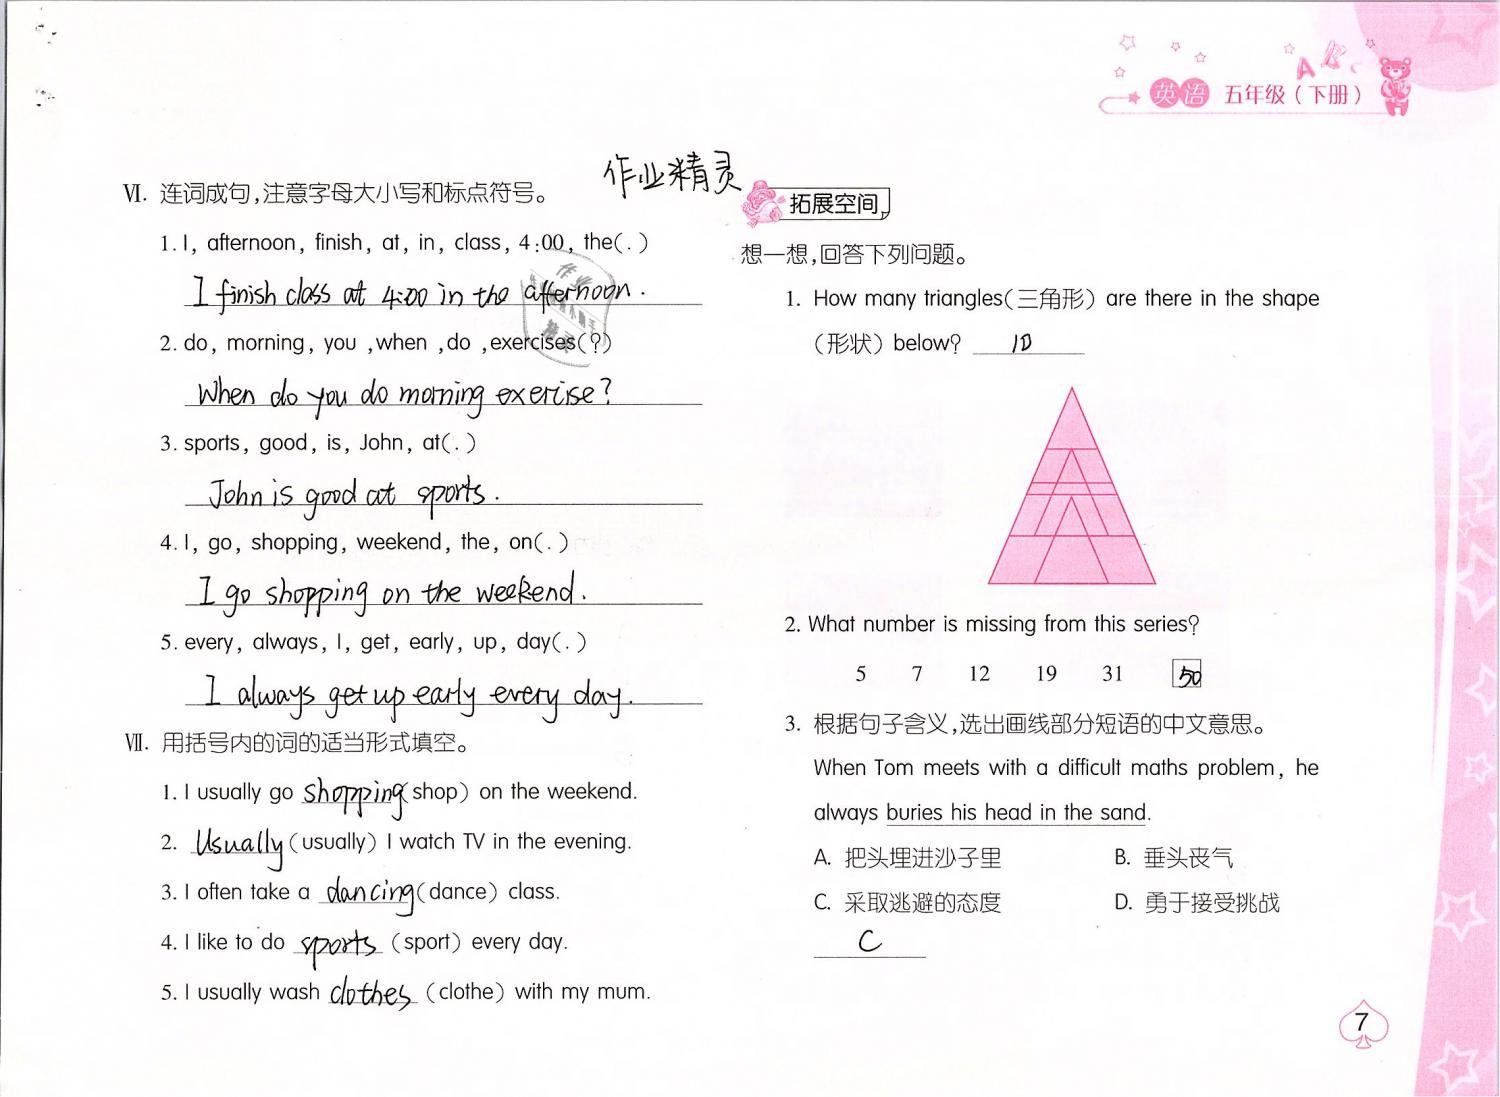 英语 五年级（下册）
作业精灵
Ⅵ. 连词成句,注意字母大小写和标点符号。
1. I, afternoon, finish, at, in, class, 4:00, the(.)
I finish class at 4:00 in the afternoon.
2. do, morning, you ,when ,do ,exercises(?)
When do you do morning exercise?
3. sports, good, is, John, at(.)
John is good at sports.
4. I, go, shopping, weekend, the, on(.)
I go shopping on the weekend.
5. every, always, I, get, early, up, day(.)
I always get up early every day.
Ⅶ. 用括号内的词的适当形式填空。
1. I usually go shopping (shop) on the weekend.
2. Usually (usually) I watch TV in the evening.
3. I often take a dancing (dance) class.
4. I like to do sports (sport) every day.
5. I usually wash clothes (clothe) with my mum.
拓展空间
想一想,回答下列问题。
1. How many triangles(三角形) are there in the shape
(形状) below? 10
2. What number is missing from this series?
5 7 12 19 31 50
3. 根据句子含义,选出画线部分短语的中文意思。
When Tom meets with a difficult maths problem, he
always buries his head in the sand.
A. 把头埋进沙子里 B. 垂头丧气
C. 采取逃避的态度 D. 勇于接受挑战
C
7